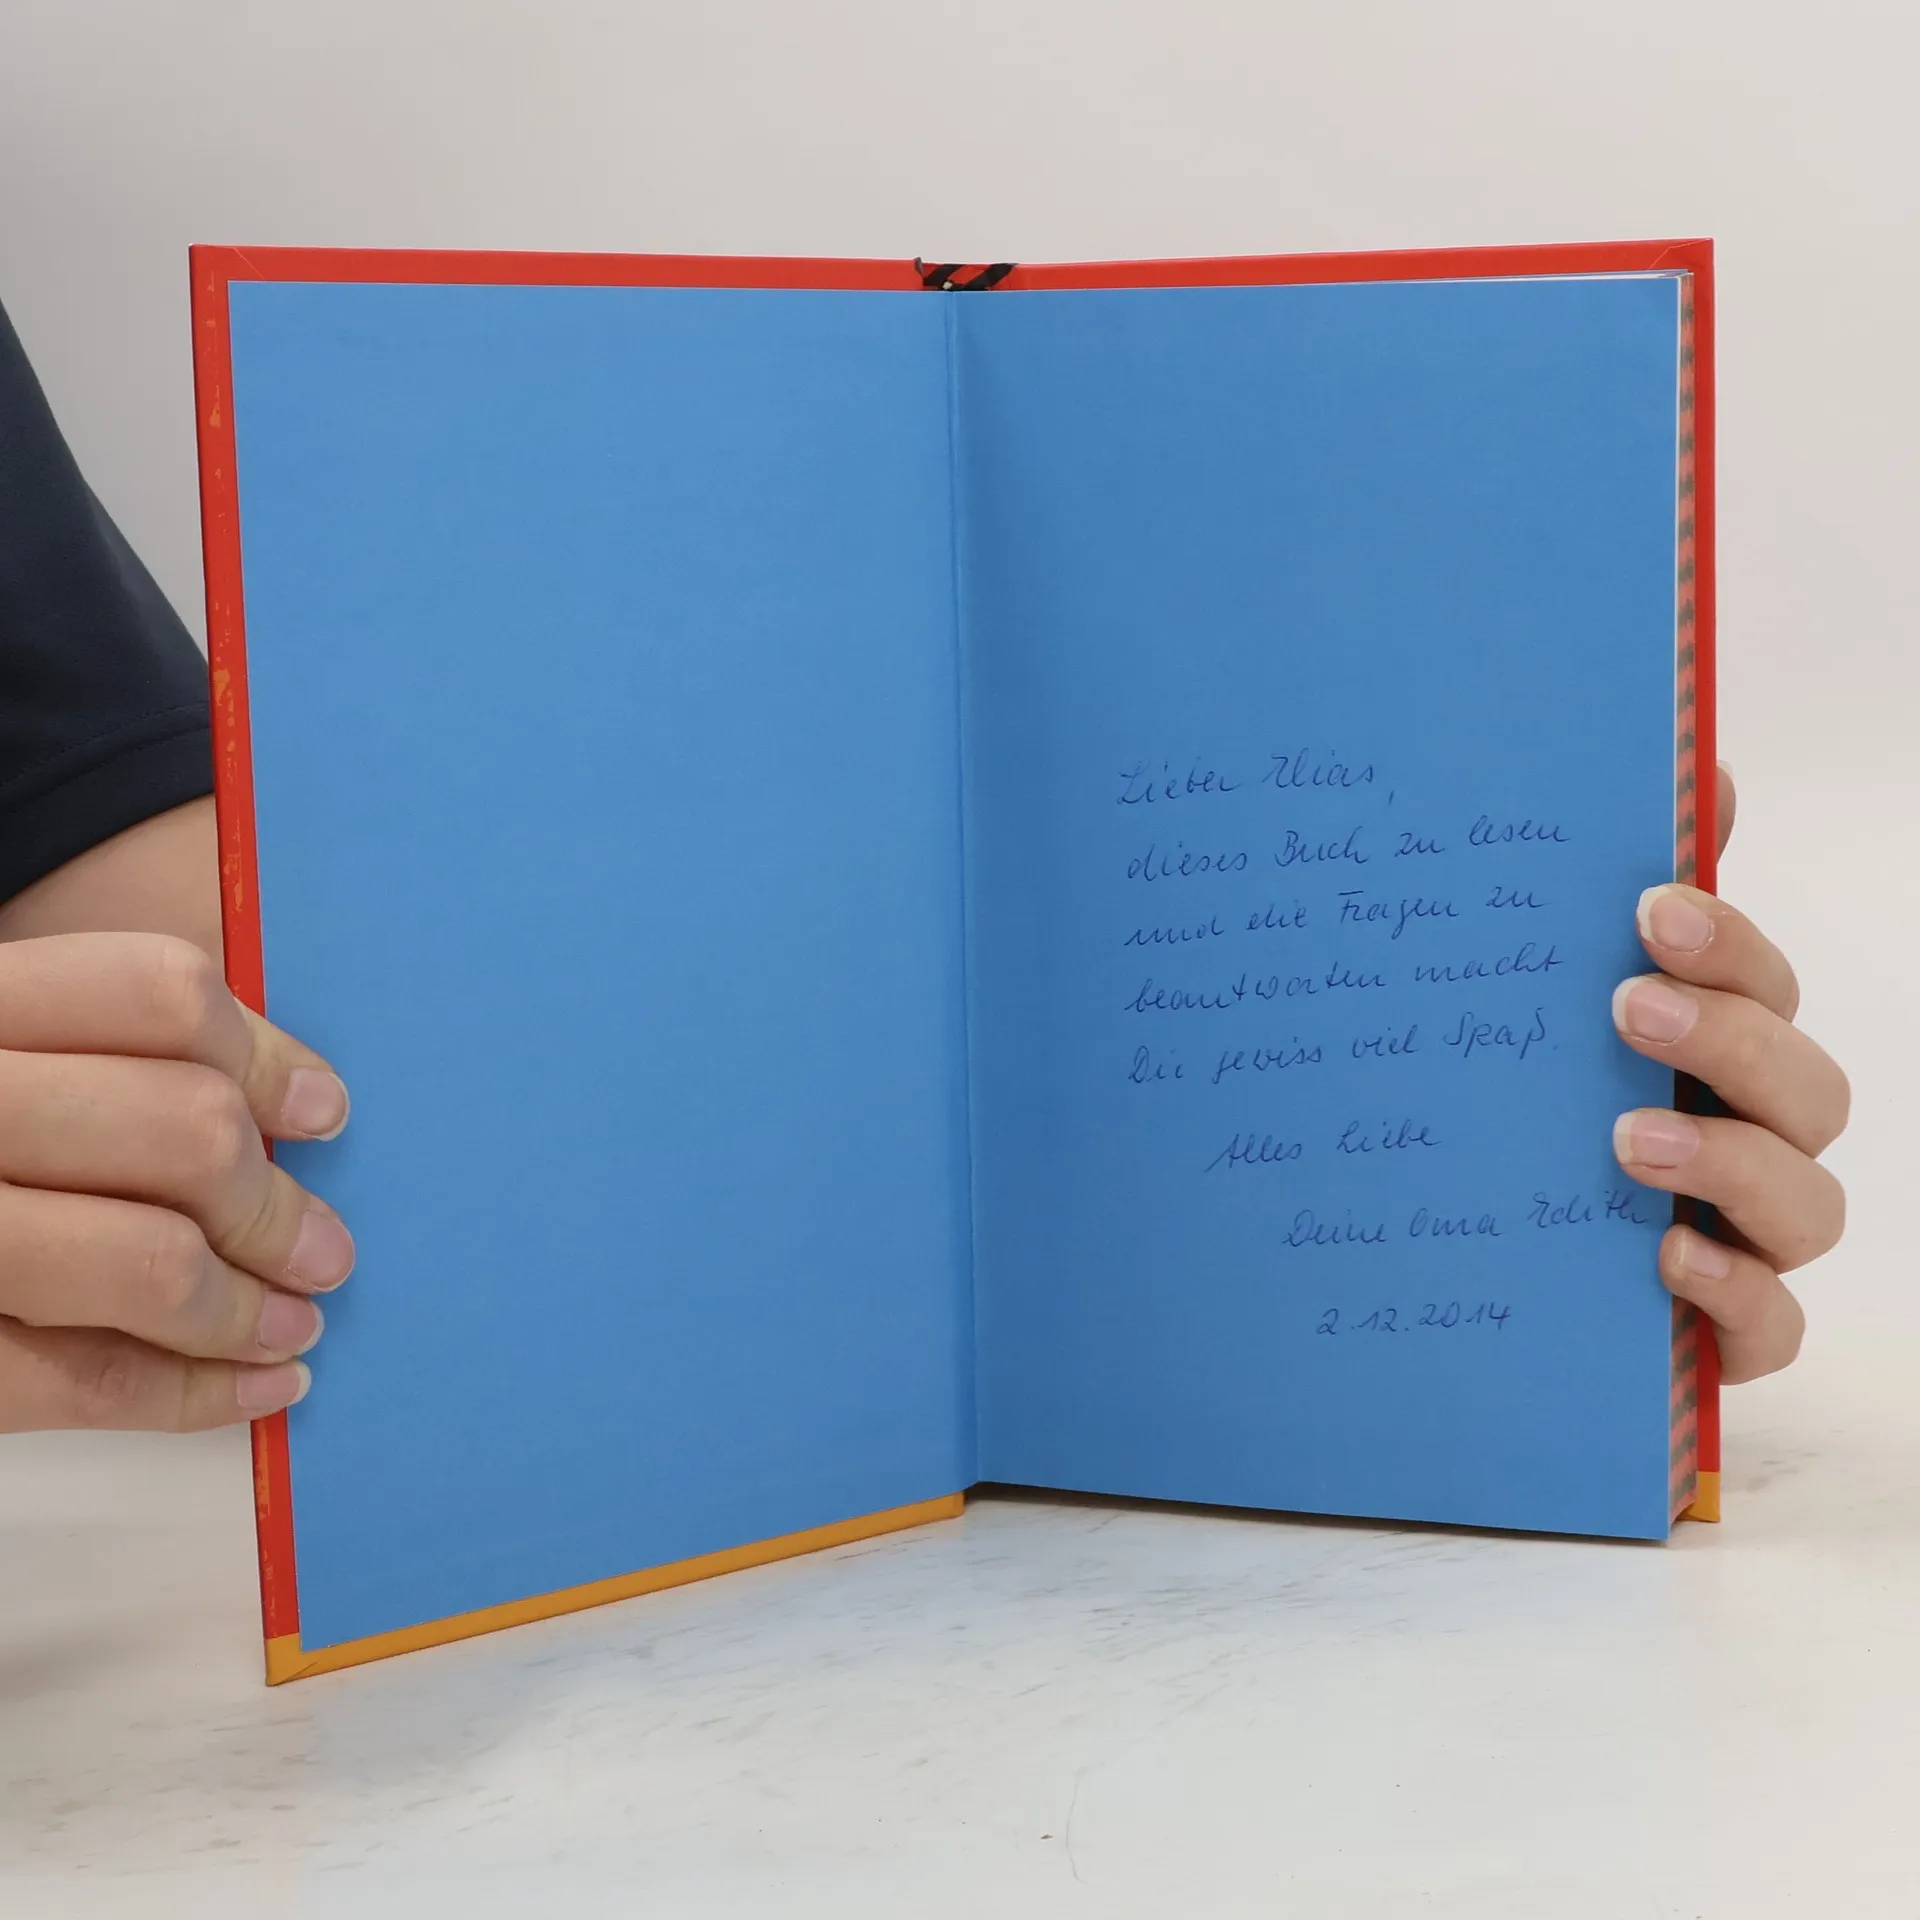 Lieber Elias,
dieses Buch zu lesen
und die Fragen zu
beantworten macht
Dir gewiss viel Spaß.
Alles Liebe
Deine Oma Edith
2.12.2014